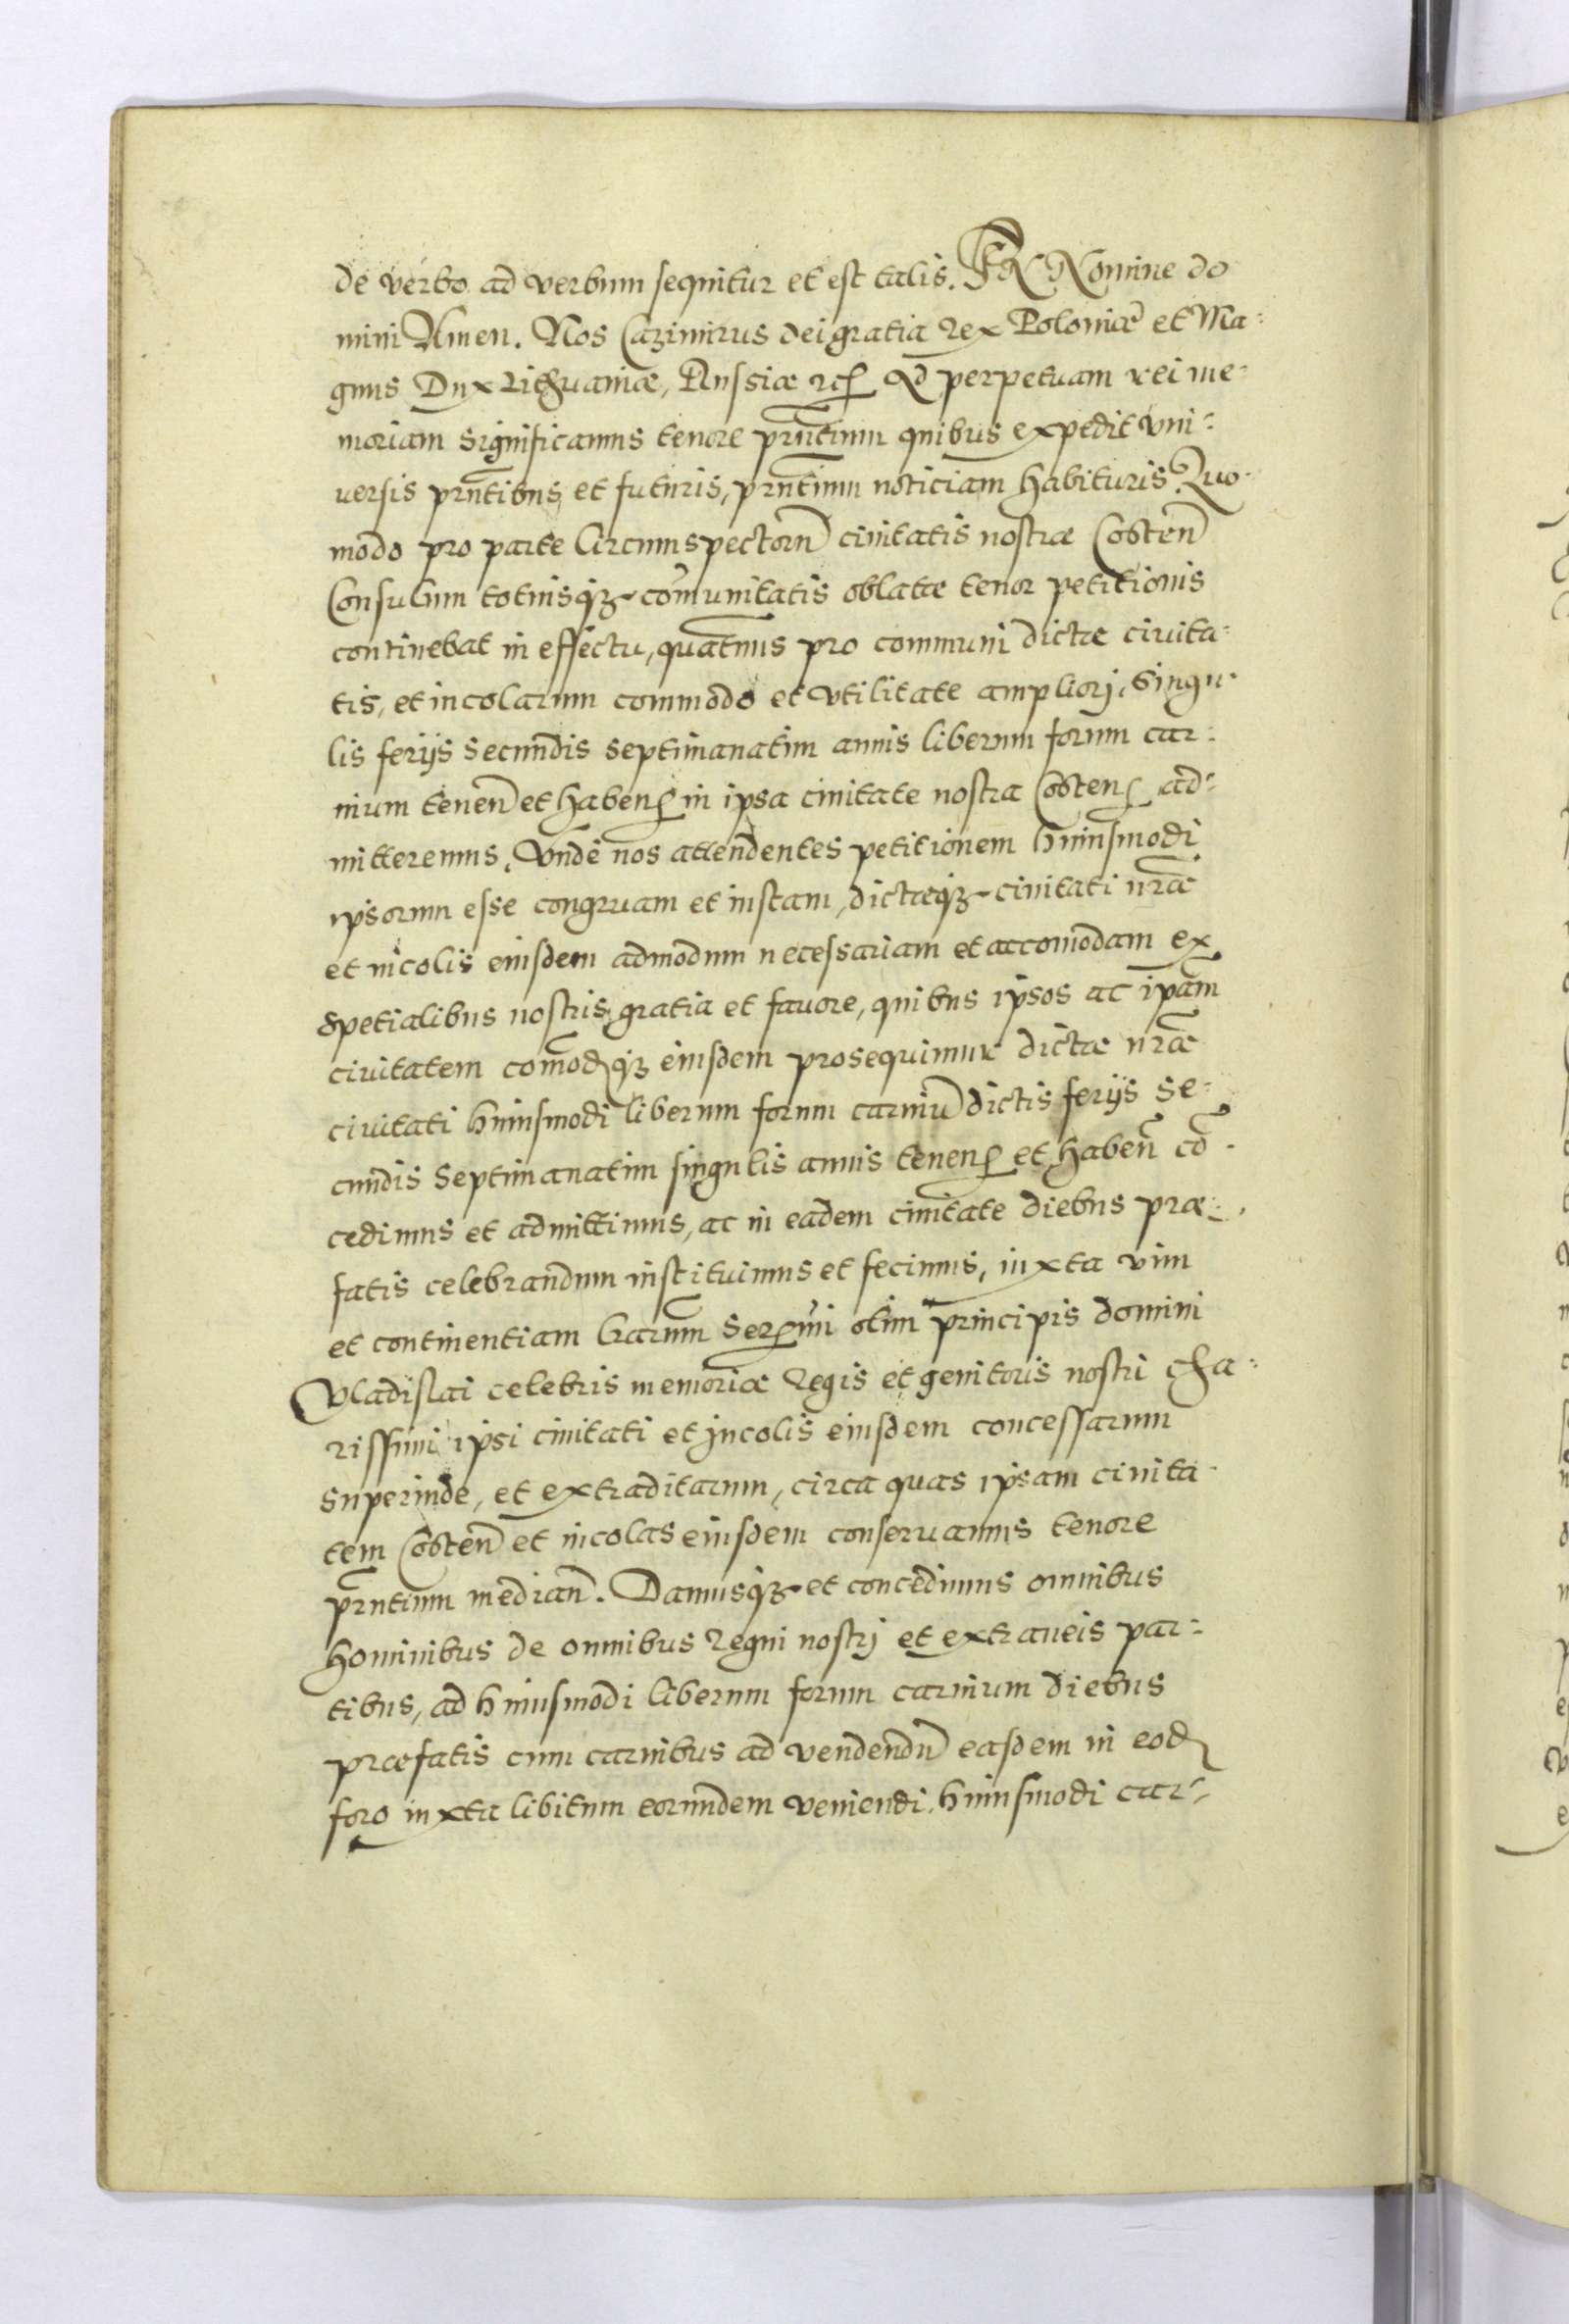 de verbo ad verbum sequitur et est talis. IN Nomine do
mini Amen. Nos Cazimirus dei gratia rex Poloniæ et Ma-
gnus Dux Lithuaniæ, Russiæ etc. Ad perpetuam rei me-
moriam significamus tenore pn̄tium quibus expedit vni-
uersis pn̄tibus et futuris, pn̄tium noticiam habituris. Quo-
modo pro parte Circumspectorū ciuitatis nostræ Costen̄
Consulum totiusq; com̄unitatis oblatæ tenor petitionis
continebat in effectu, quatenus pro communi dictæ ciuita-
tis, et incolarum commodo et vtilitate ampliorj, singu-
lis ferijs secundis septimanatim annis liberum forum car-
nium tenen̄ et haben̄ in ipsa ciuitate nostra Costen̄ ad-
mitteremus. Vnde nos attendentes petitionem huiusmodi
ipsorum esse congruam et iustam, dictæq; ciuitati nr̄æ
et incolis eiusdem admodum necessariam et accom̄odam ex
spetialibus nostris gratia et fauore, quibus ipsos ac ip̄am
ciuitatem com̄odq; eiusdem prosequimur dictæ nr̄æ
ciuitati huiusmodi liberum forum carniū dictis ferijs se-
cundis septimanatim singulis annis tenen̄ et haben̄ cō-
cedimus et admittimus, ac in eadem ciuitate diebus præ-
fatis celebrandum instituimus et fecimus, iuxta vim
et continentiam l̄rarum Ser̄mi olim principis domini
Vladislai celebris memoriæ regis et genitoris nostri cha-
rissimi ipsi ciuitati et Jncolis eiusdem concessarum
superinde, et extraditarum, circa quas ipsam ciuita-
tem Costen̄ et incolas eiusdem conseruamus tenore
pn̄tium median̄. Damusq; et concedimus omnibus
hominibus de omnibus regni nostrj et extraneis par-
tibus, ad huiusmodi liberum forum carnium diebus
præfatis cum carnibus ad vendendū easdem in eod
foro iuxta libitum eorundem veniendi. huiusmodi car-